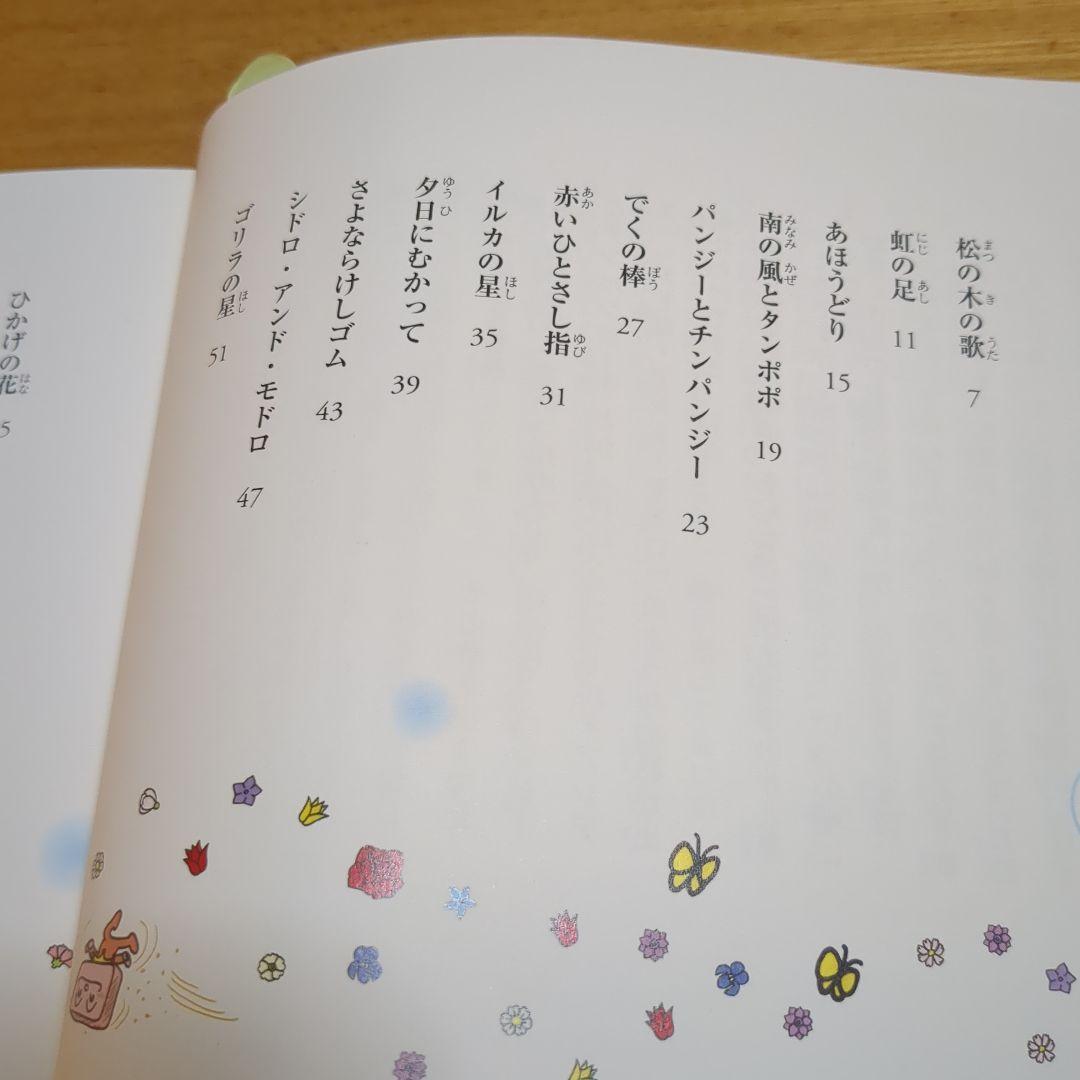 松の木の歌 7
虹の足 11
あほうどり 15
南の風とタンポポ 19
パンジーとチンパンジー 23
でくの棒 27
赤いひとさし指 31
イルカの星 35
夕日にむかって 39
さよならけしゴム 43
シドロ・アンド・モドロ 47
ゴリラの星 51
ひかげの花 5